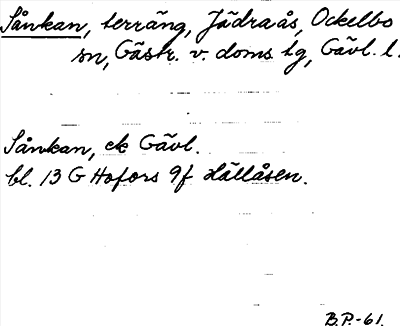 Sånkan, terräng, Jädraås, Ockelbo
sn, Gästr. v. doms. tg, Gävl. l.
Sånkan, ek Gävl.
bl. 13 G Hofors 9f Hällåsen.
B.P.-61.